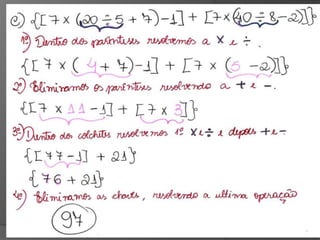 c) {[7 × (20 ÷ 5 + 7) - 1] + [7 × (40 ÷ 8 - 2)]}
1º) Dentro dos parênteses resolvemos a × e ÷.
{[7 × (4 + 7) - 1] + [7 × (5 - 2)]}
2º) Eliminamos os parênteses resolvendo a + e -.
{[7 × 11 - 1] + [7 × 3]}
3º) Dentro do colchetes resolvemos 1º × e ÷ e depois + e -
{[77 - 1] + 21}
{76 + 21}
4º) Eliminamos as chaves, resolvendo a ultima operação
97